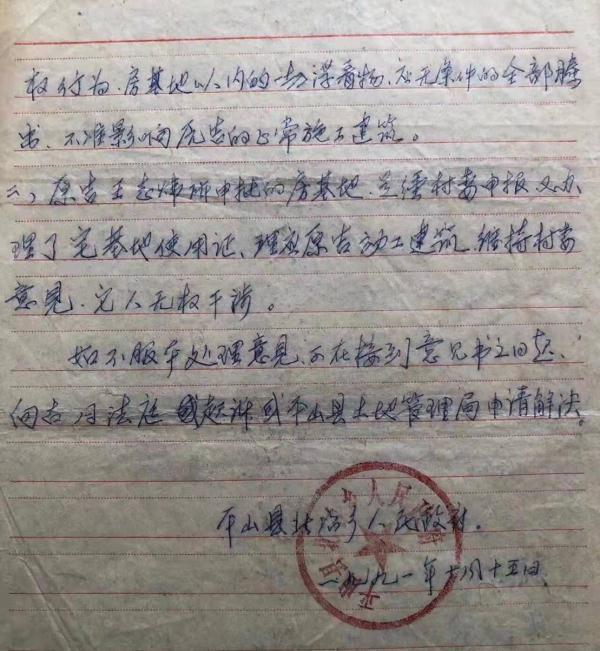 权行为,房基地以内的一切浮着物,应无条件的全部腾
出、不准影响原告的正常施工建筑。
二、原告王志伟所申批的房基地,是经村委申报又办
理了宅基地使用证、理应原告动工建筑,维持村委
意见,它人无权干涉。
如不服本处理意见、可在接到意见书之日起、
向古月法庭起诉或平山县土地管理局申请解决。
平山县北冶乡人民政府.
一九九一年 月十五日.